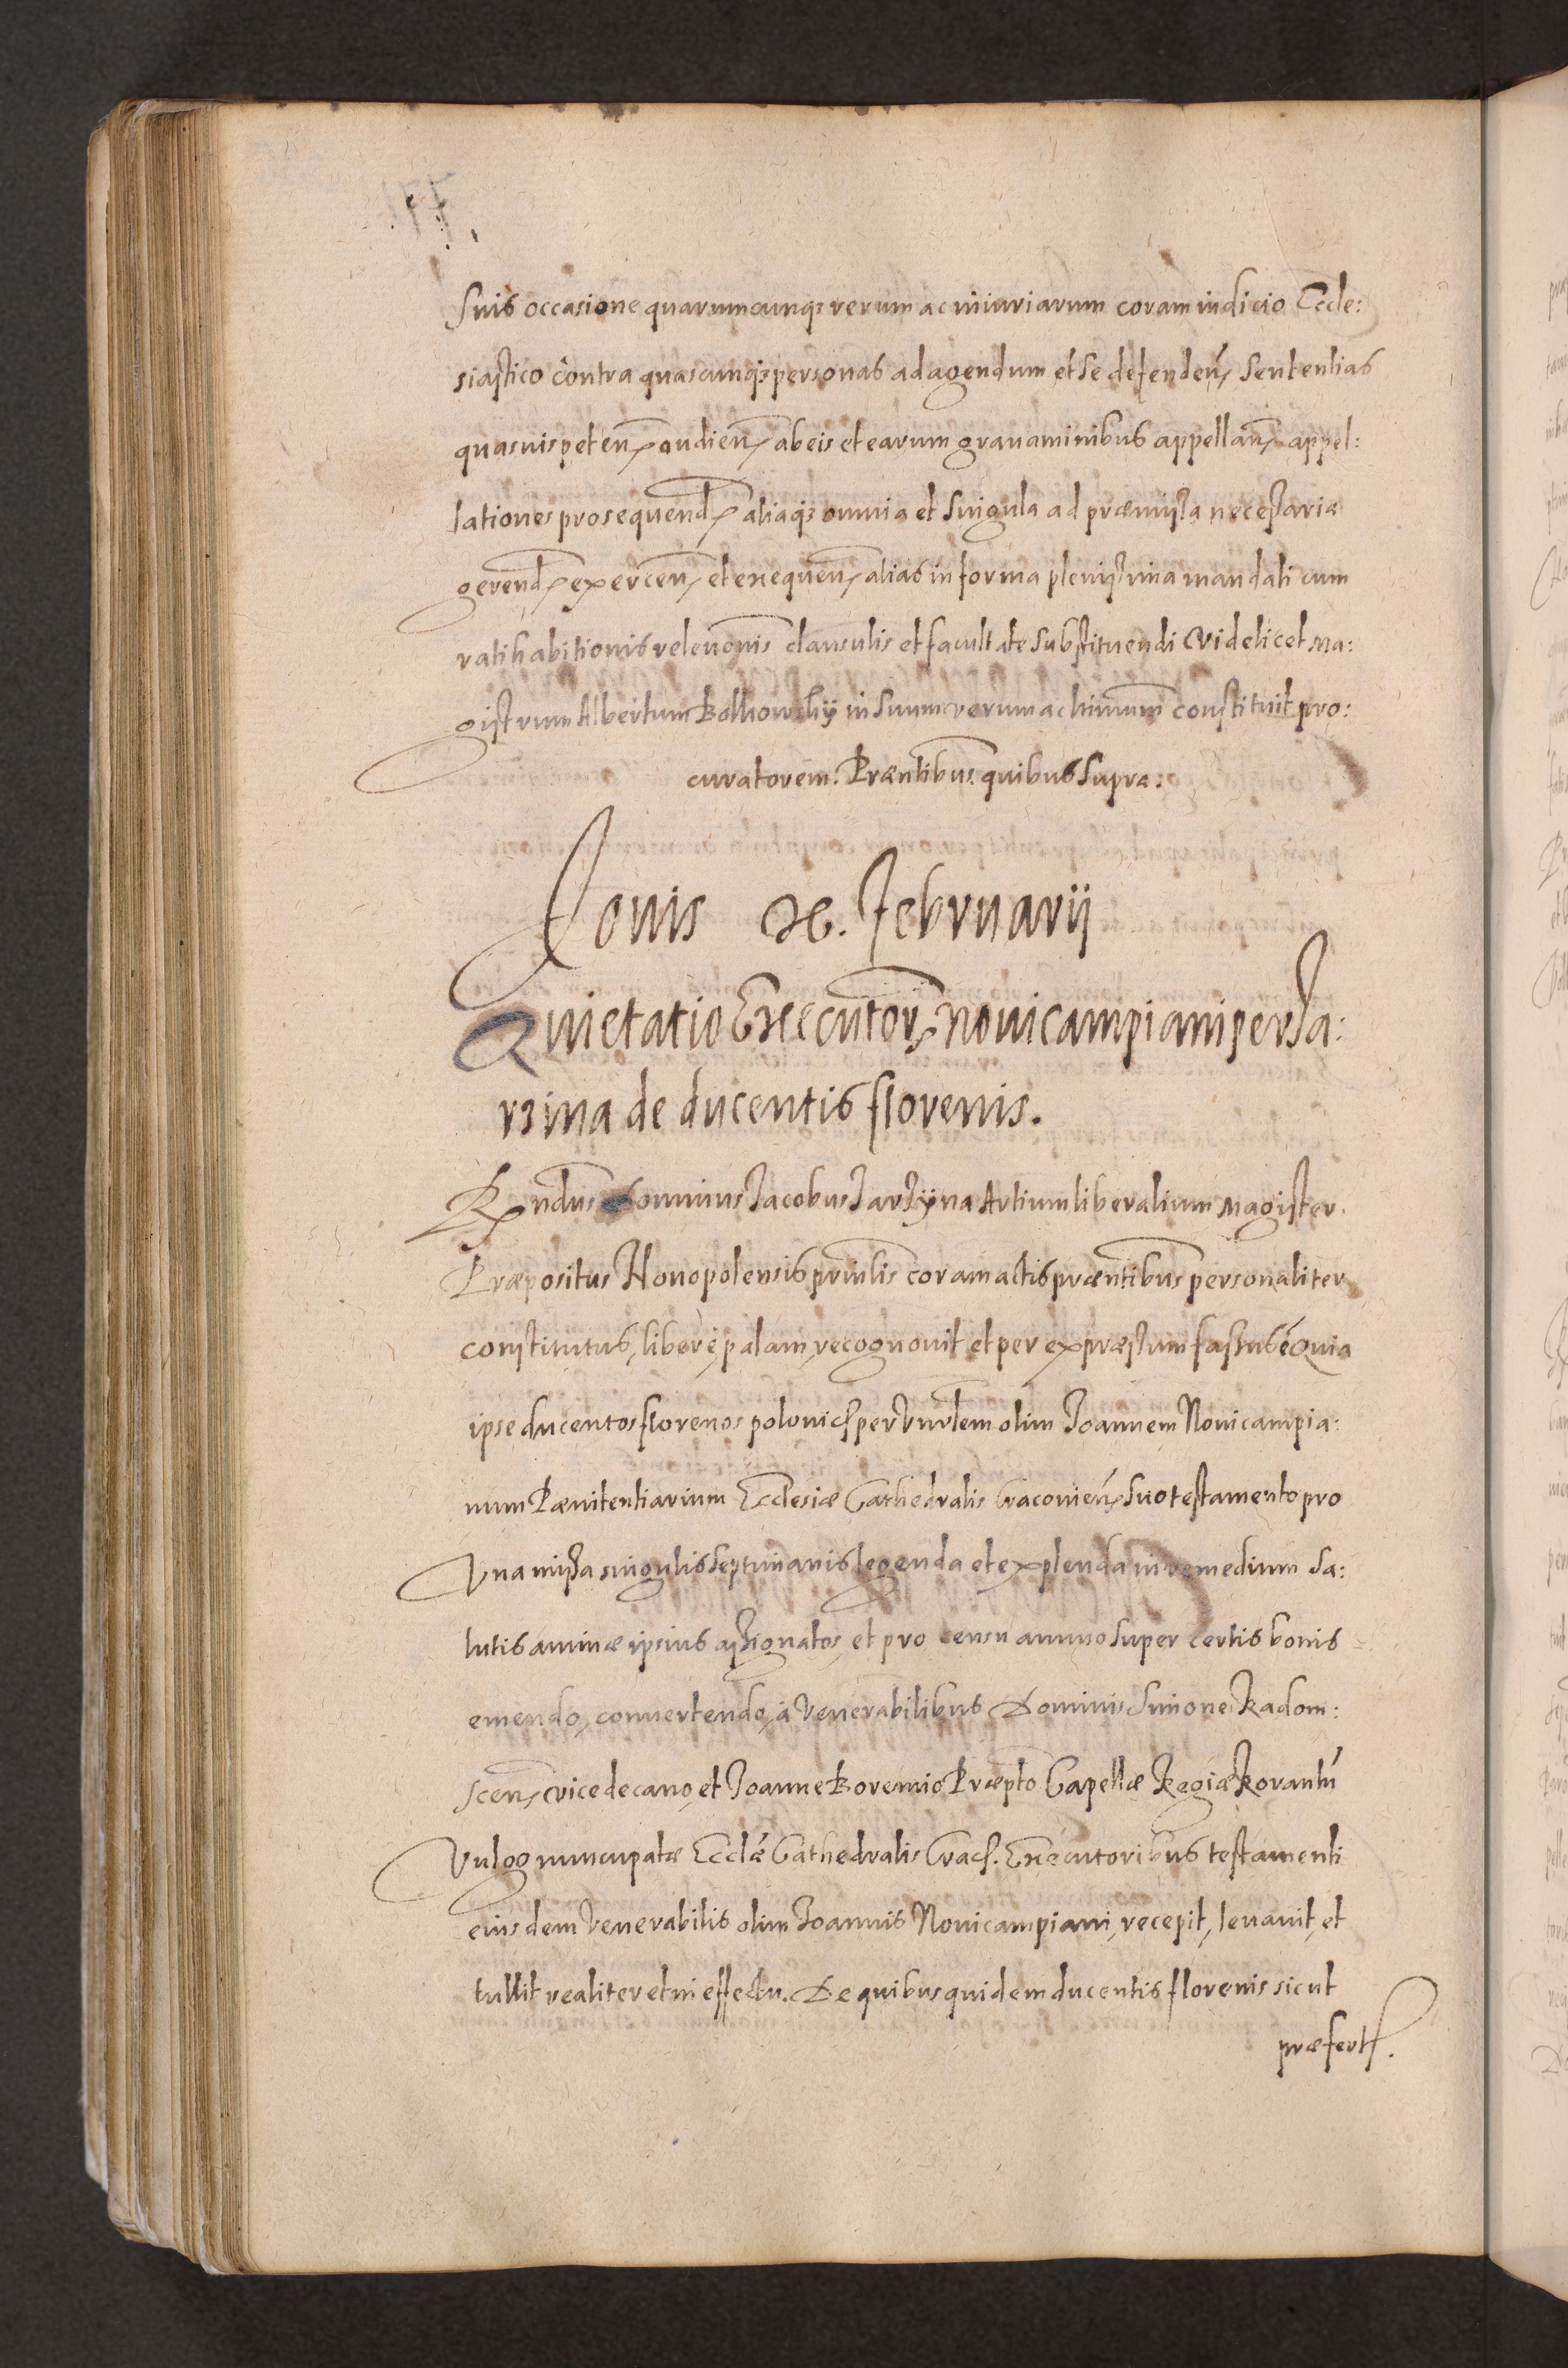 suis occasione quarumcunqz rerum ac iniuriarum coram iudicio Eccle:
siastico contra quascunqz personas ad agendum et se defendeñ sententias
quasuis peteñ audieñ ab eis et earum grauaminibus appellañ appel:
lationes prosequend aliaqz omnia et singula ad præmissa necessaria
gerend exerceñ et exequeñ alias in forma plenissima mandati cum
ratihabitionis releuonis clausulis et facultate substituendi videlicet Ma:
gistrum Albertum in suum verum ac ltimum constituit pro:
curatorem. Præntibus quibus supra.
Jouis 26. Februarij
Quietatio Executor Nouicampiani per Ja:
rzina de ducentis florenis.
Rndus Dominus Jacobus Jarzyna Artium liberalium Magister.
Præpositus coram actis præntibus personaliter
constitutus, liberè, palam, recognouit et per expræssum fassus é Quia
ipse ducentos florenos per olim Joannem Nouicampia:
num Pænitentiarium Ecclesiæ Cathedralis Cracouieñ suo testamento pro
Vna missa singulis septimanis legenda et explenda in remedium sa:
lutis animæ ipsius assignatos, et pro censu annuo super certis bonis
emendo, conuertendo, à Venerabilibus Dominis Simone Radom:
sceñ vicedecano, et Joanne Boremio Præpto Capellæ Regiæ Rorantú
Vulgo nuncupatæ Ecclæ Cathedralis Crac. Executoribus testamenti
eiusdem Venerabilis olim Joannis Nouicampiani, recepit, leuauit, et
tullit realiter et in effectu. De quibus quidem ducentis florenis sicut
præfert.